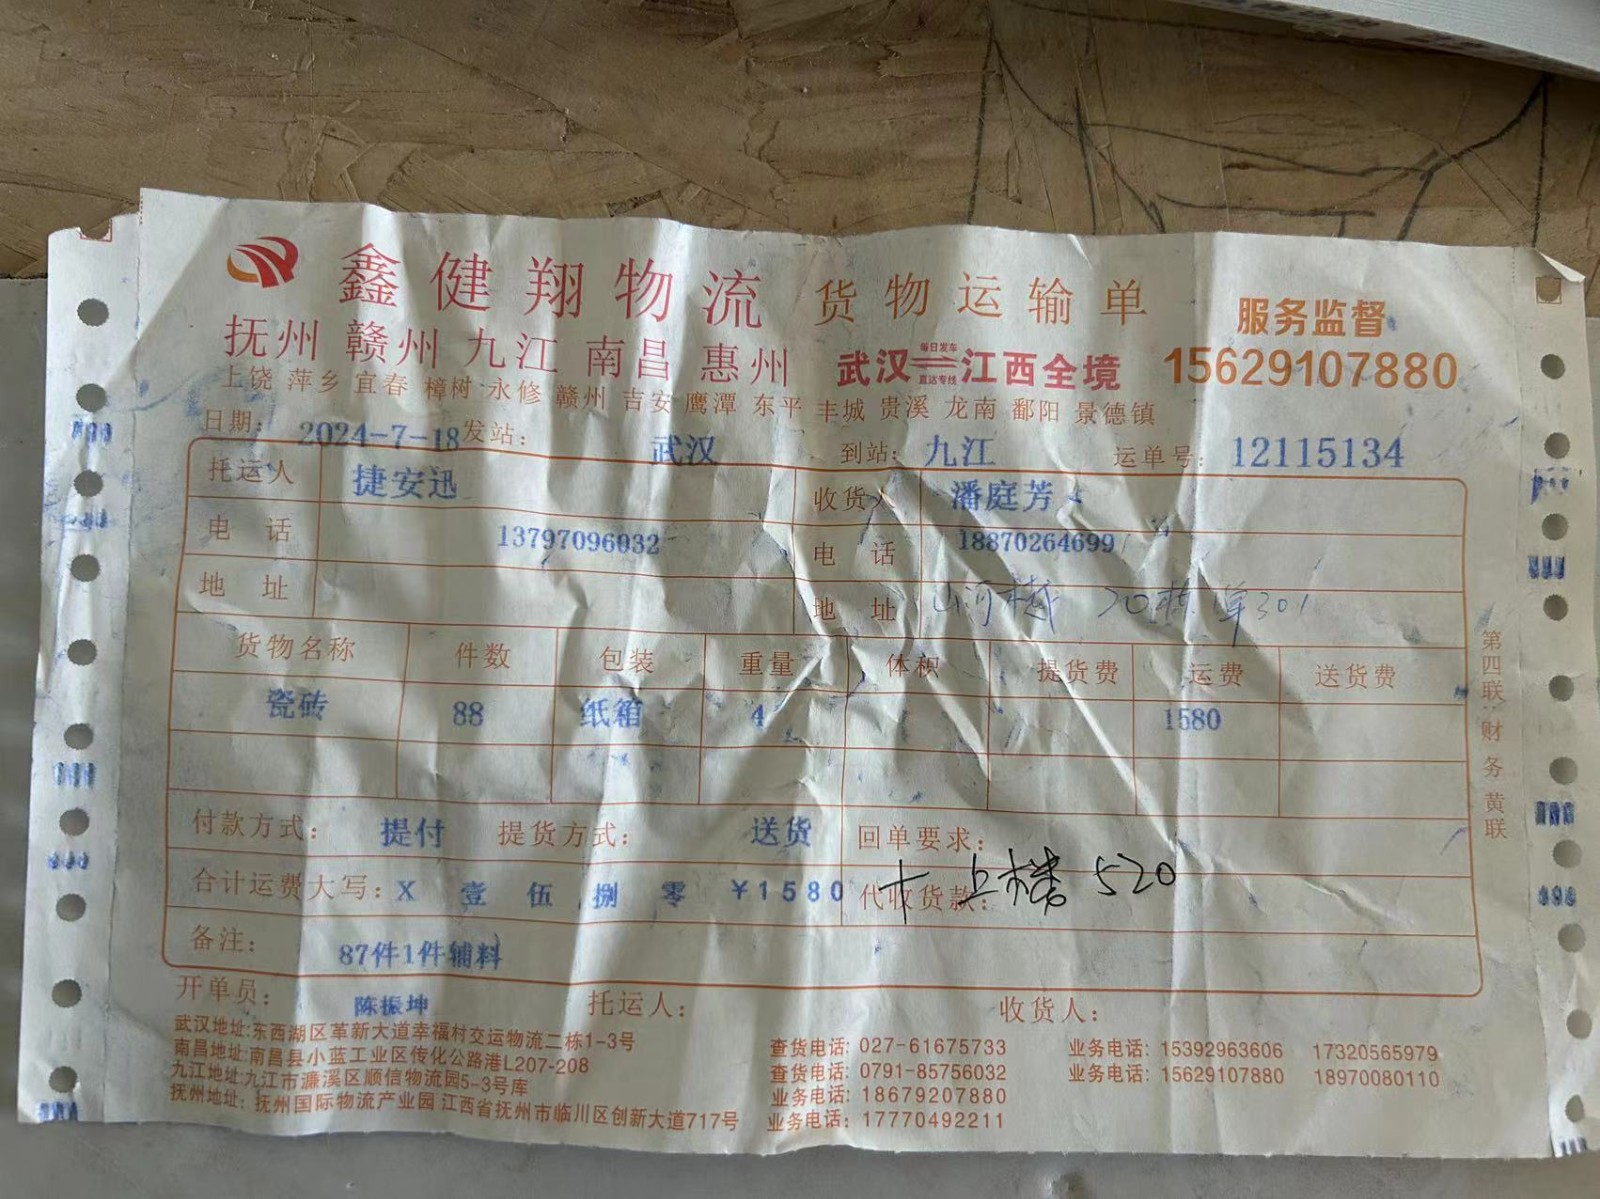 鑫健翔物流 货物运输单 服务监督
抚州 赣州 九江 南昌 惠州 武汉 每日发车 直达专线 江西全境 15629107880
上饶 萍乡 宜春 樟树 永修 赣州 吉安 鹰潭 东平 丰城 贵溪 龙南 鄱阳 景德镇
日期: 2024-7-18 发站: 武汉 到站: 九江 运单号: 12115134
托运人 捷安迅 收货人 潘庭芳
电 话 13797096032 电 话 18870264699
地 址 地 址 20栋 单301
货物名称 件数 包装 重量 体积 提货费 运费 送货费
瓷砖 88 纸箱 4 1580
付款方式: 提付 提货方式: 送货 回单要求:
合计运费大写: X 壹 伍 捌 零 ¥1580 代收货款: 十 上楼 520
备注: 87件1件辅料
开单员: 陈振坤 托运人: 收货人:
武汉地址:东西湖区革新大道幸福村交运物流二栋1-3号 查货电话: 027-61675733 业务电话: 15392963606 17320565979
南昌地址:南昌县小蓝工业区传化公路港L207-208 查货电话: 0791-85756032 业务电话: 15629107880 18970080110
九江地址:九江市濂溪区顺信物流园5-3号库 业务电话: 18679207880
抚州地址: 抚州国际物流产业园 江西省抚州市临川区创新大道717号 业务电话: 17770492211
第四联:财务黄联